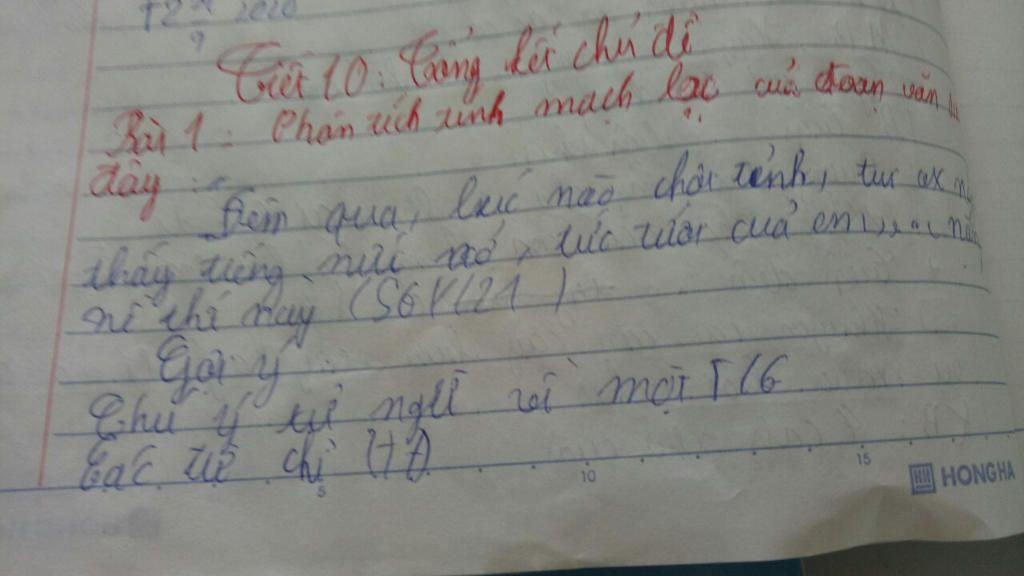 2020
9
Tiết 10: Tổng kết chủ đề
Bài 1: Phân tích tính mạch lạc của đoạn văn
đây:
Đêm qua, lúc nào chợt tỉnh, tui
thấy tiếng nức nở, tức tưởi của em,
nề thế này (SGK/21)
Gợi ý:
Chú ý từ ngữ về mọi T/G
Các từ chỉ
5 10 15
HONGHA